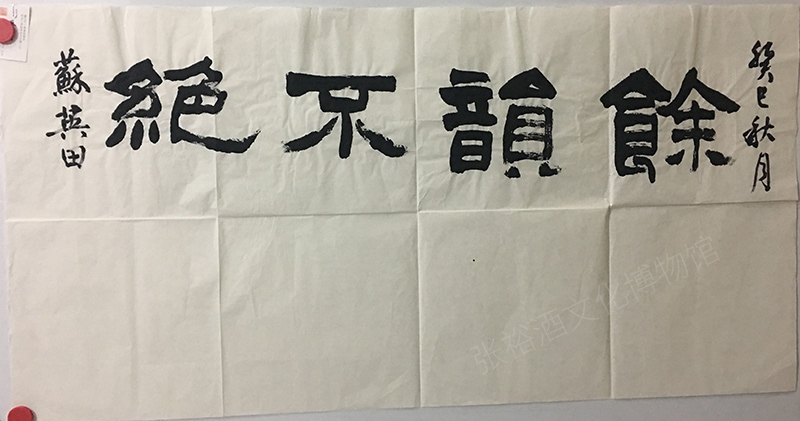 癸巳秋月
餘韻不絕
蘇英田
张裕酒文化博物馆